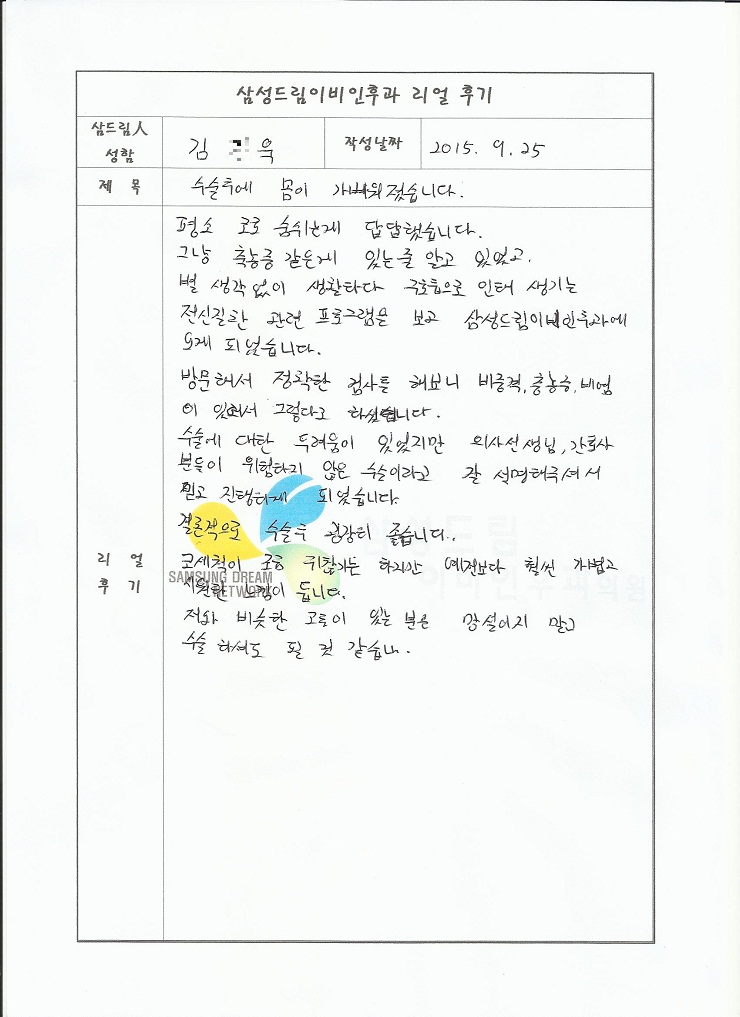 삼성드림이비인후과 리얼 후기
삼드림人 성함 김 욱 작성날짜 2015. 9. 25
제 목 수술후에 몸이 가벼워졌습니다.
평소 코로 숨쉬는게 답답했습니다.
그냥 축농증 같은게 있는줄 알고 있었고.
별 생각없이 생활하다 구호흡으로 인해 생기는
전신질환 관련 프로그램을 보고 삼성드림이비인후과에
오게 되었습니다.
방문해서 정확한 검사를 해보니 비중격, 충농증, 비염
이 있어서 그렇다고 하셨습니다.
수술에 대한 두려움이 있었지만 의사선생님, 간호사
분들이 위험하지 않은 수술이라고 잘 설명해주셔서
믿고 진행하게 되었습니다.
결론적으로 수술후 굉장히 좋습니다..
리 얼 후 기
코세척이 조금 귀찮기는 하지만 예전보다 훨씬 가볍고
시원한 느낌이 듭니다.
저와 비슷한 고통이 있는 분은 망설이지 말고
수술 하셔도 될 것 같습니다.
SAMSUNG DREAM
NETWORK
삼성드림
이비인후과의원